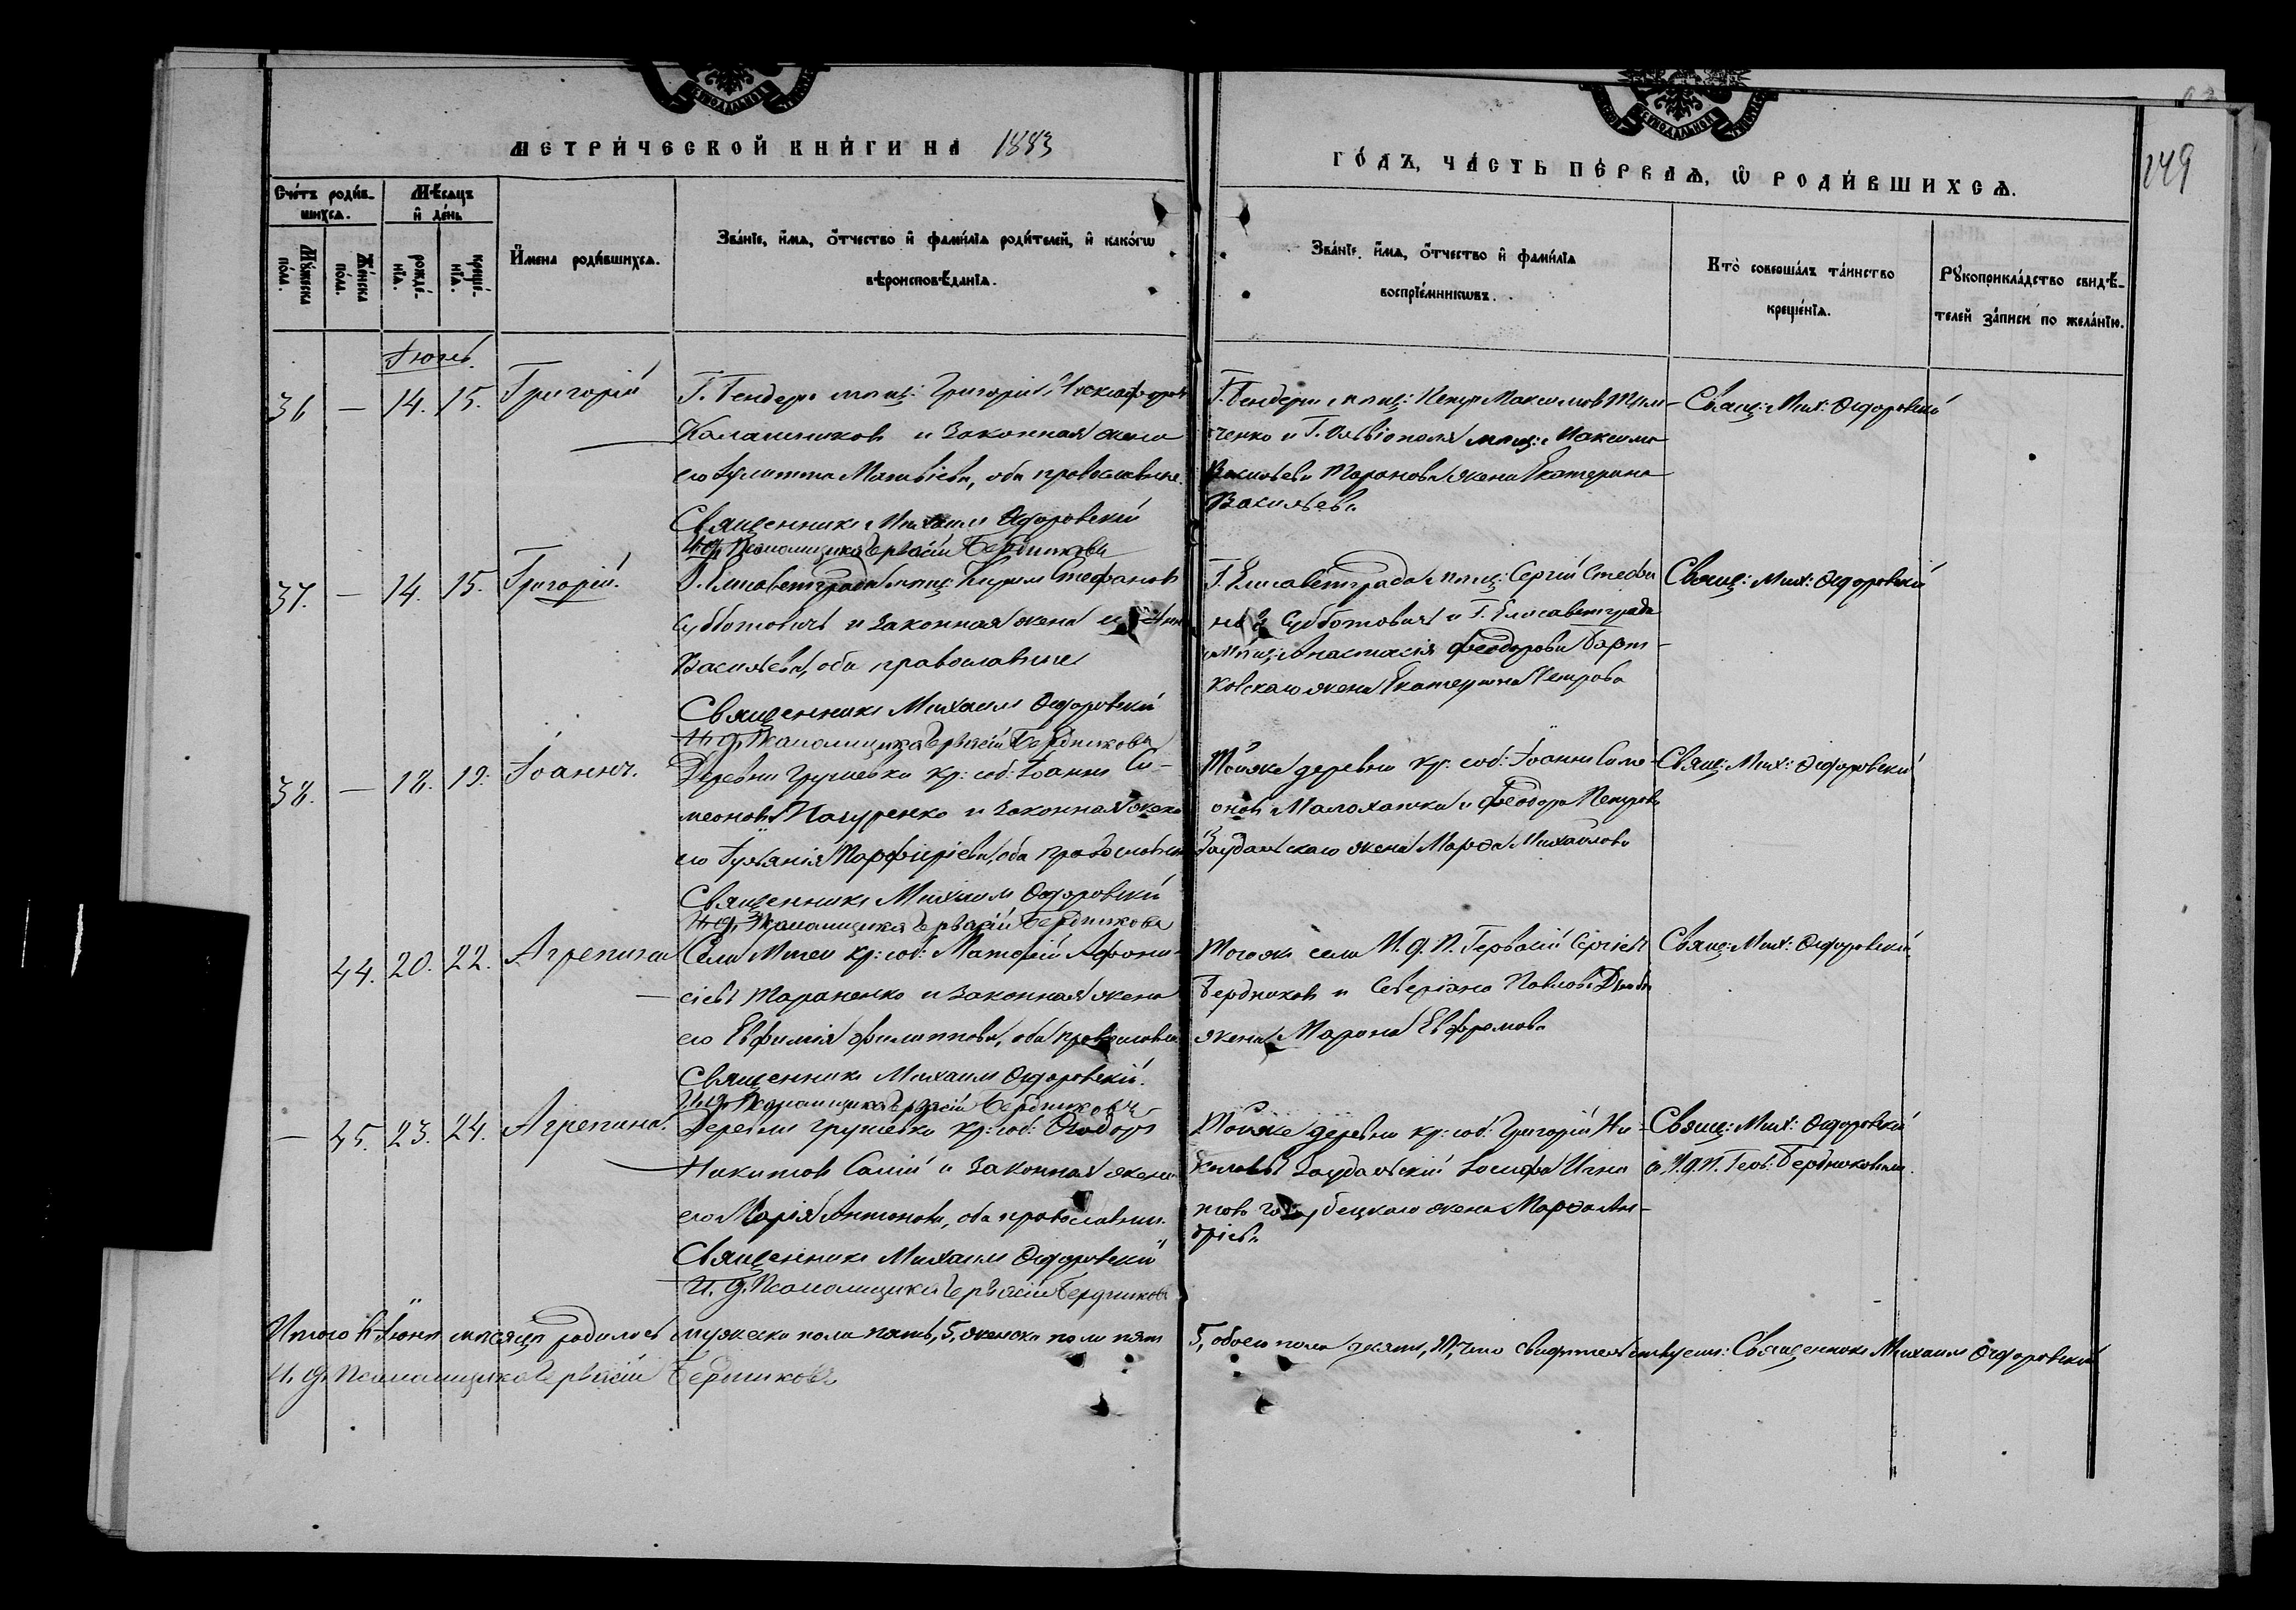 МЕТРИ́ЧЕСКОЙ КНИ́ГИ НА 1883
ГО́ДЪ, ЧА́СТЬ ПЕ́РВАѦ, Ѡ РОДИ́ВШИХСѦ.
149
Сче́тъ роди́в-
шихсѧ.
Мѣ́сяцъ
и҆ де́нь
Мꙋ́жеска по́ла.
Же́нска по́ла.
рожде́-
нїѧ.
креще́-
нїѧ.
И҆́мена роди́вшихсѧ.
Зва́нїе, и҆́мѧ, ѻ҆́тчество и҆ фами́лїѧ роди́телей, и҆ како́гѡ
вѣроисповѣ́данїѧ.
Зва́нїе, и҆́мѧ, ѻ҆́тчество и҆ фами́лїѧ
воспрїе́мникѡвъ.
Кто̀ соверша́лъ та́инство
креще́нїѧ.
Рꙋкоприкла́дство свидѣ́-
телей за́писи по жела́нїю.
Іюнь.
36 — 14. 15. Григорій
Г. Бендеръ мѣщ: Григорій
Калашниковъ и законная жена
его Іулитта Матвѣева, оба православные.
Священникъ Михаилъ Ѳедоровскій
И. д. Псаломщика Гервасій Бердниковъ
Г. Бендеры мѣщ: Петръ Максимовъ
ченко и Г. мѣщ:
Васильева Таранова жена Екатерина
Васильева
Свящ: Мих: Ѳедоровскій
37. — 14. 15. Григорій.
Г. Елисаветграда мѣщ: Стефановъ
Субботовичъ и законная жена его Анна
Васильева, оба православные
Священникъ Михаилъ Ѳедоровскій
И. д. Псаломщика Гервасій Бердниковъ
Г. Елисаветграда мѣщ: Сергій Стефа
новъ Субботовичъ и Г. Елисаветграда
мѣщ: Феодорова
ковскаго жена Екатерина Петрова
Свящ: Мих: Ѳедоровскій
38. — 18. 19. Іоаннъ.
Деревни Грушевки кр: соб: Іоаннъ Си-
меоновъ и законная жена
его Іуліанія Парфиріева, оба православные
Священникъ Михаилъ Ѳедоровскій
И. д. Псаломщика Гервасій Бердниковъ
Тойже деревни кр: соб: Іоаннъ
оновъ Малохатка и Феодора Петрова
жена Марѳа Михайлова
Свящ: Мих: Ѳедоровскій
44. 20. 22. Агрепина
Села Мигеи кр: соб: Матѳей Аѳана-
сіевъ Тараненко и законная жена
его Евфимія Филиппова, оба православные
Священникъ Михаилъ Ѳедоровскій.
И. д. Псаломщика Гервасій Бердниковъ
Тогоже села И. д. П. Гервасій Сергіевъ
Бердниковъ и Северіана Павлова
жена Марѳа Евфремова
Свящ: Мих: Ѳедоровскій
— 45. 23. 24. Агрепина.
Деревни Грушевки кр: соб: Ѳеодоръ
Никитовъ Салій и законная жена
его Марія Антонова, оба православные.
Священникъ Михаилъ Ѳедоровскій
И. д. Псаломщика Гервасій Бердниковъ
Тойже деревни кр: соб: Григорій Ни-
Іосифа Игна
това жена Марѳа Ан-
дріева
Свящ: Мих: Ѳедоровскій
съ И. д. П. Герв: Бердниковымъ.
Итого въ Іюнѣ мѣсяцѣ родилось мужеска пола пять, 5, женска пола пять
5, обоего пола десять, 10, что свидѣтельствуемъ: Священникъ Михаилъ Ѳедоровскій
И. д. Псаломщика Гервасій Бердниковъ